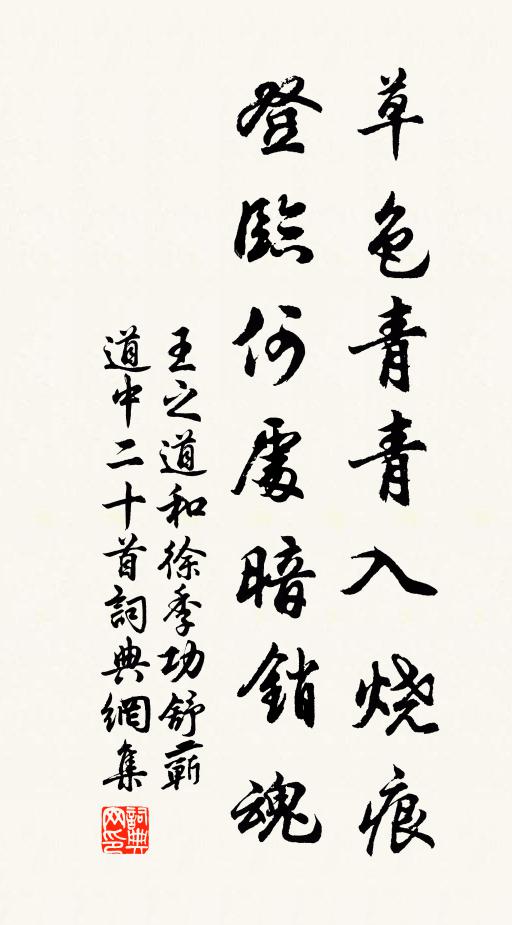 草色青青入烧痕
登臨何處暗銷魂
王之道和徐季功舒蘄
道中二十首詞典網集
詞典
网印